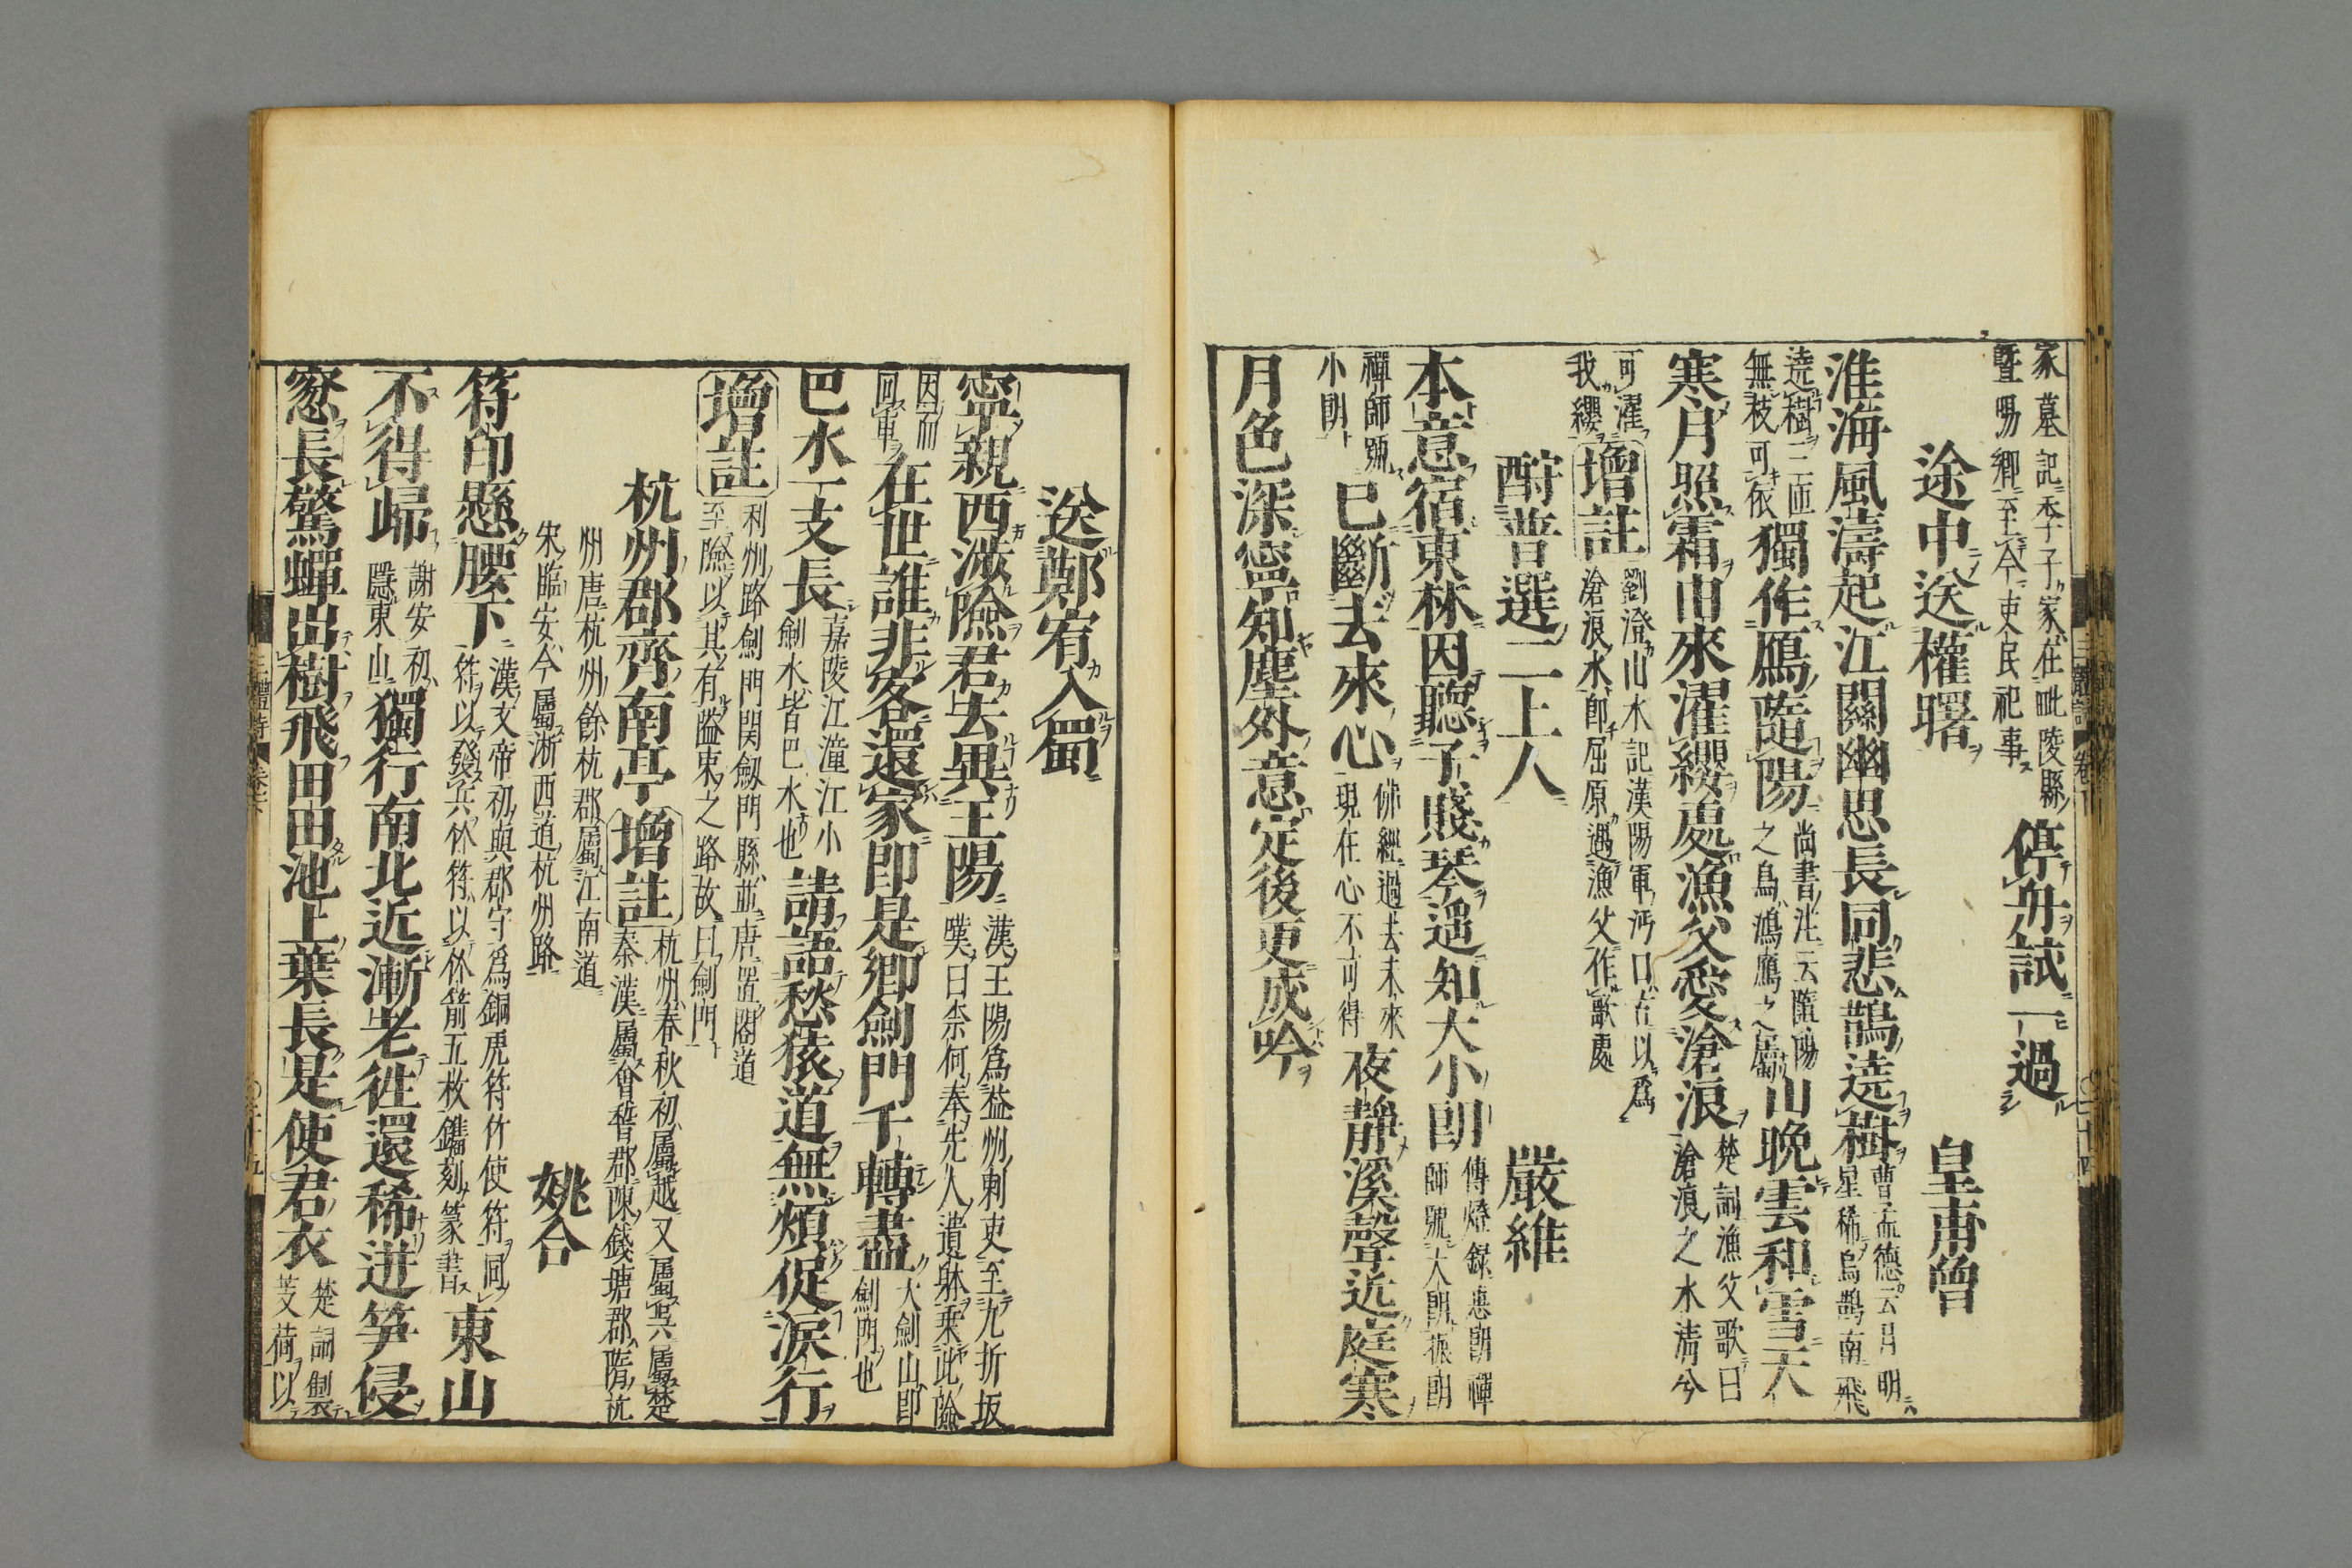 家墓記季子家在毗陵縣
曁昜郷至今吏民祀事
停舟試一過
途中送權曙
皇甫曾
淮海風濤起江關幽思長同悲鵲遶樹
曹孟德云月明
星稀烏鵲南飛
遶樹三匝
無枝可依
獨作鴈隨陽
尚書注云隨陽
之鳥鴻鴈之屬
山晩雲和雪天
寒月照霜由來濯纓處漁父愛滄浪
楚詞漁父歌曰
滄浪之水淸兮
可濯
我纓
增註
劉澄山水記漢陽軍沔口古以爲
滄浪水卽屈原遇漁父作歌處
酧普選二上人
嚴維
本意宿東林因聽子賤琴遥知大小朗
傳燈録惠朗禪
師號大朗振朗
禪師號
小朗
已斷去來心
佛經過去未來
現在心不可得
夜靜溪聲近庭寒
月色深寧知塵外意定後更成吟
送鄭宥入蜀
寧親西涖險君去異王陽
漢王陽爲益州刺史至九折坂
嘆曰柰何奉先人遺躰乗此險
因而
回車
在世誰非客還家即是郷劍門千轉盡
大劍山卽
劍門也
巴水一支長
嘉陵江潼江小
劍水皆巴水也
請語愁猿道無煩促淚行
增註
利州路劍門関劔門縣並唐置閣道
至險以其有隘束之路故曰劍門
杭州郡齊南亭
增註
杭州春秋初屬越又屬吳屬楚
秦漢屬會稽郡陳錢塘郡隋杭
州唐杭州餘杭郡屬江南道
宋臨安今屬淅西道杭州路
姚合
符印懸腰下
漢文帝初與郡守爲銅虎符竹使符同
符以發兵竹符以竹箭五枚鐫刻篆書
東山
不得歸
謝安初
隱東山
獨行南北近漸老徃還稀迸笋侵
窓長驚蟬出樹飛田田池上葉長是使君衣
楚詞製
芰荷以
三體詩
卷六